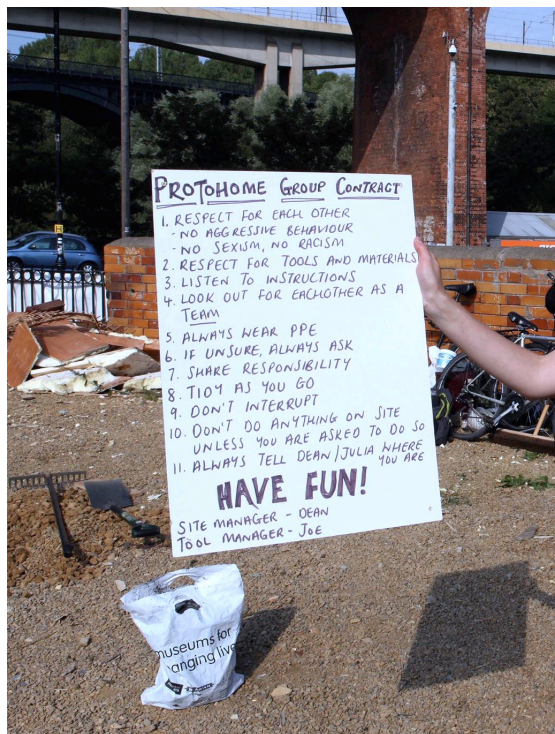 PROTOHOME GROUP CONTRACT
1. RESPECT FOR EACH OTHER
- NO AGGRESSIVE BEHAVIOUR
- NO SEXISM, NO RACISM
2. RESPECT FOR TOOLS AND MATERIALS
3. LISTEN TO INSTRUCTIONS
4. LOOK OUT FOR EACHOTHER AS A
TEAM
5. ALWAYS WEAR PPE
6. IF UNSURE, ALWAYS ASK
7. SHARE RESPONSIBILITY
8. TIDY AS YOU GO
9. DON'T INTERRUPT
10. DON'T DO ANYTHING ON SITE
UNLESS YOU ARE ASKED TO DO SO
11. ALWAYS TELL DEAN/JULIA WHERE
YOU ARE
HAVE FUN!
SITE MANAGER - DEAN
TOOL MANAGER - JOE
museums for
anging live